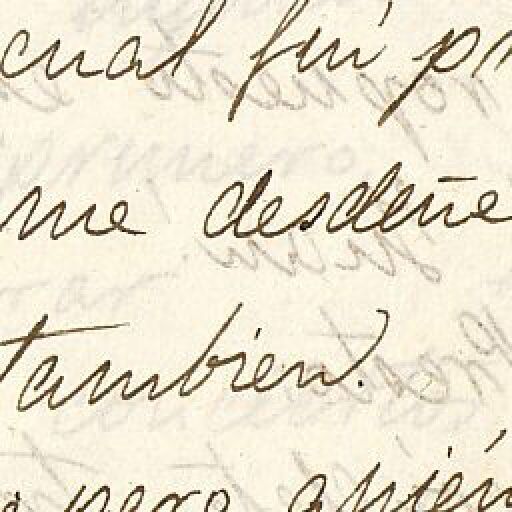 cual fuí
me desdeñe
tambien.
pero quién